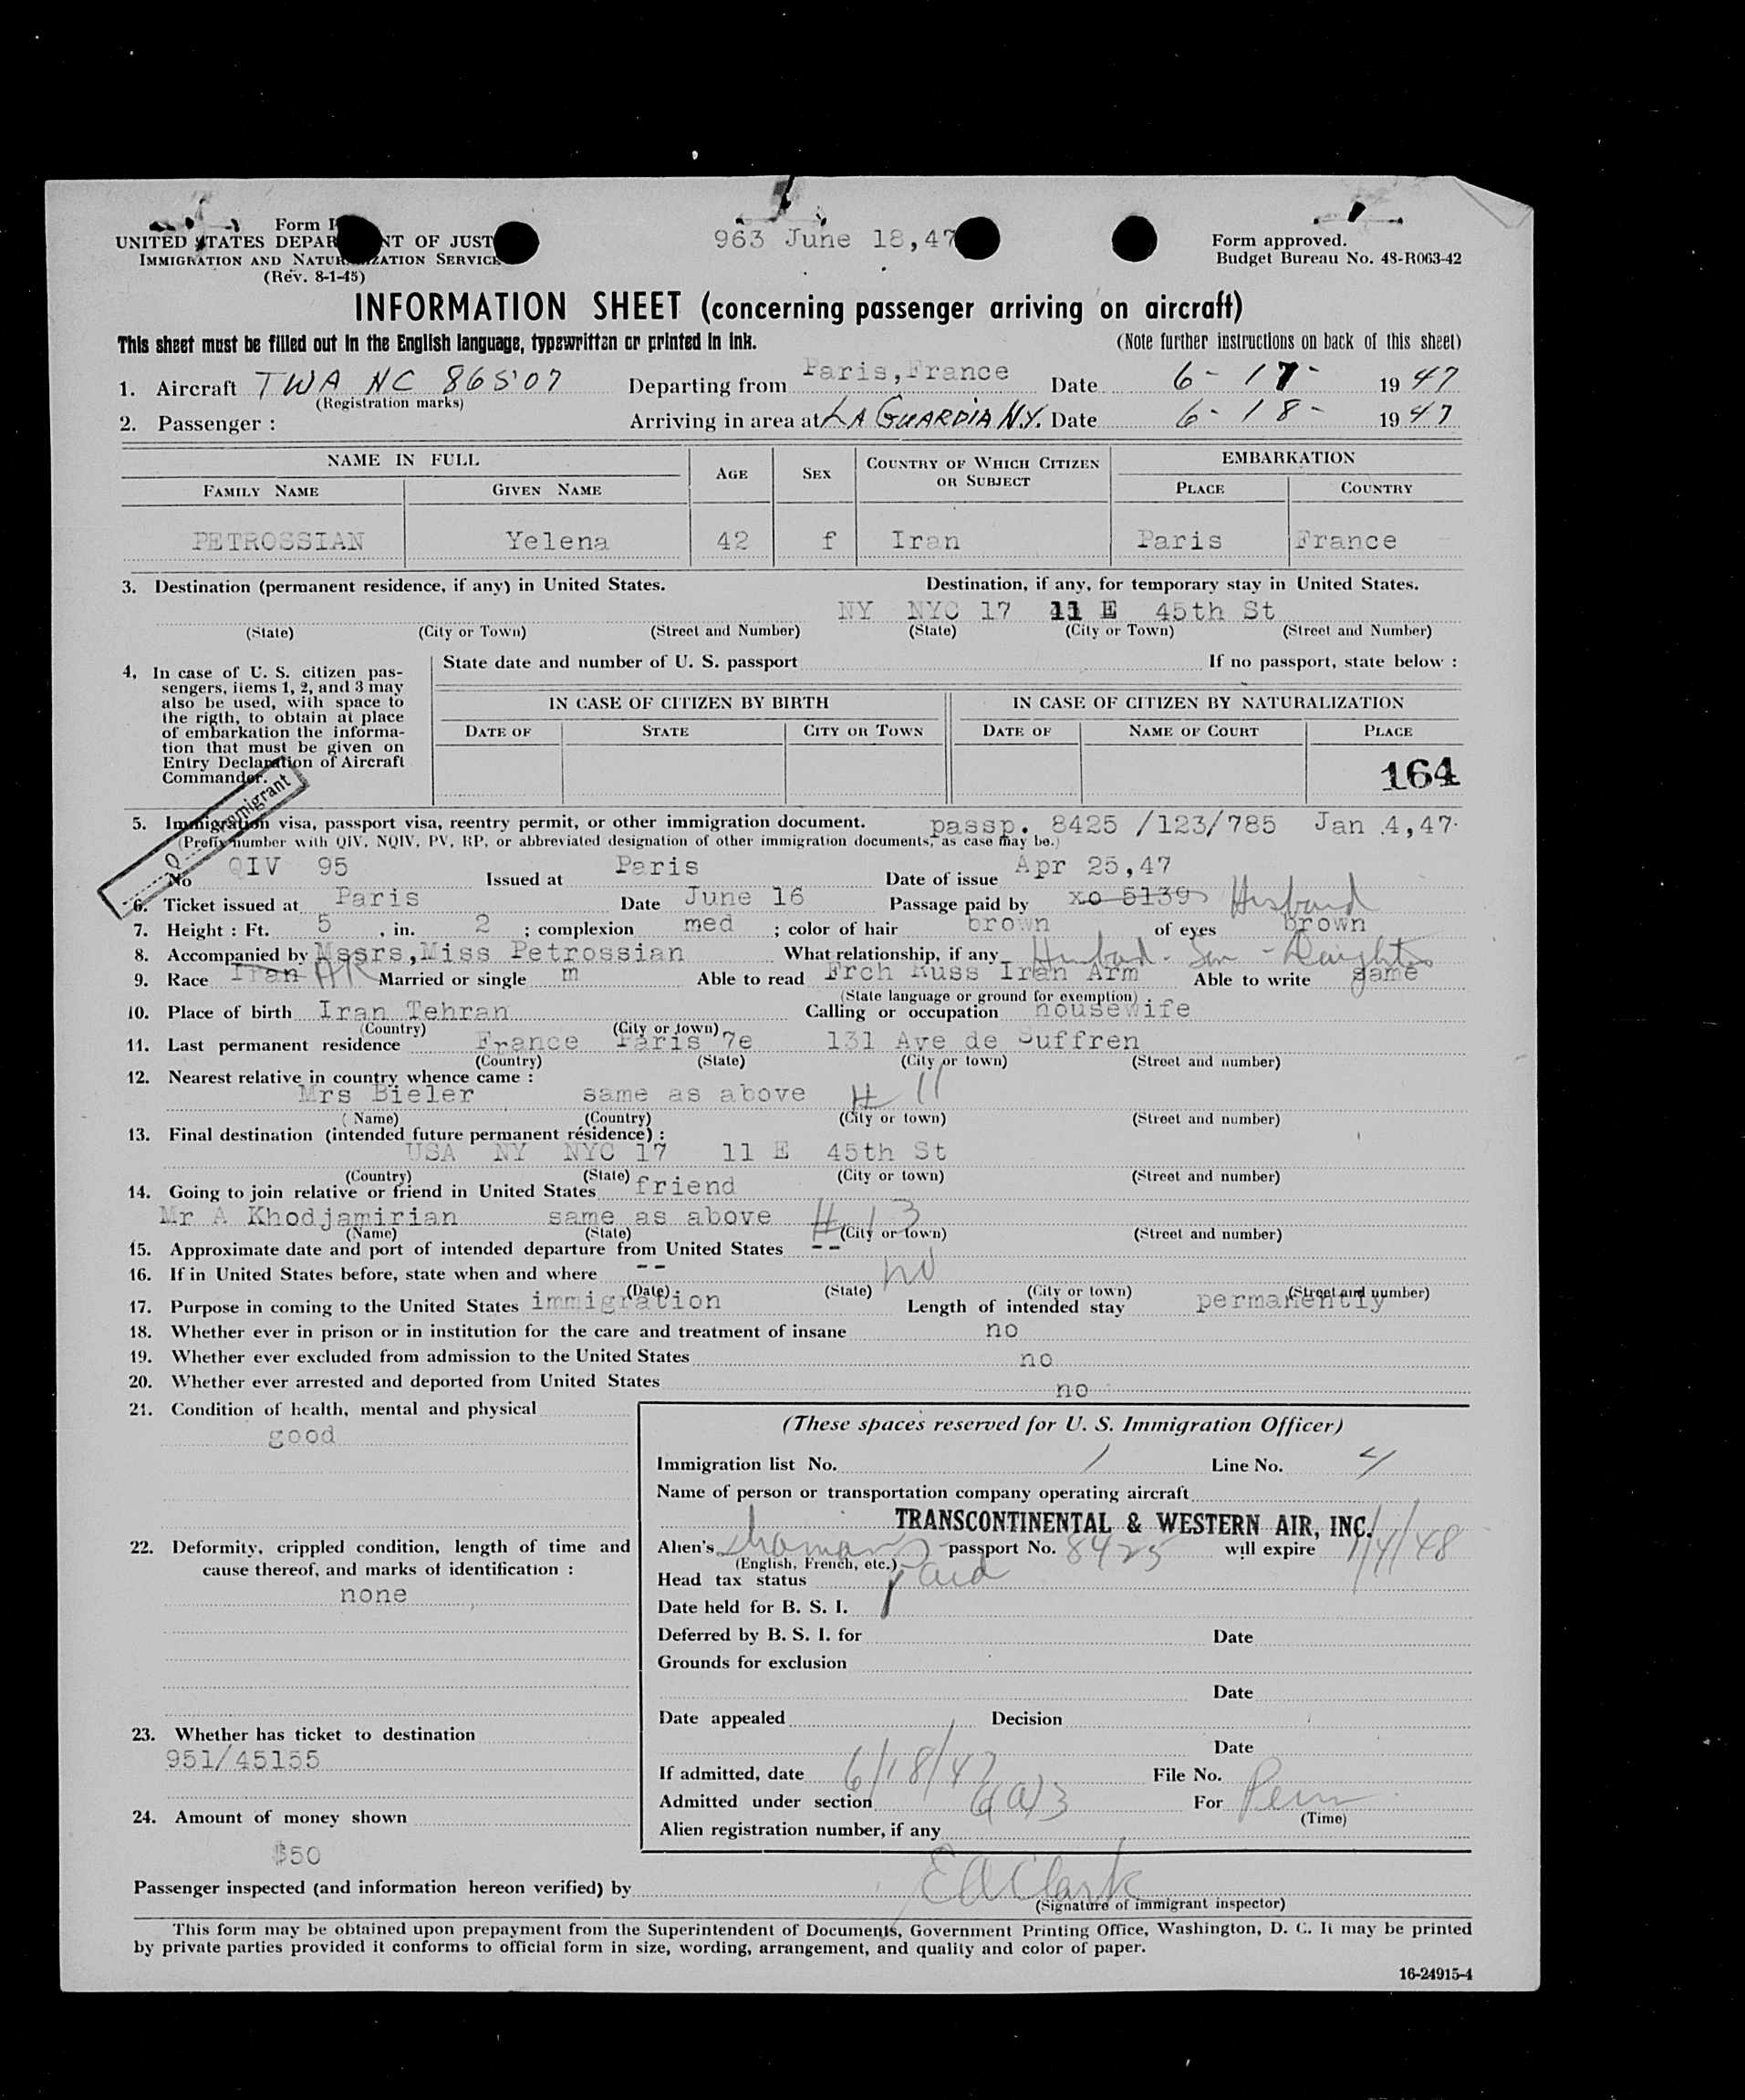 Form I
963 June 18,47
Form approved.
UNITED STATES DEPAR NT OF JUST
Budget Bureau No. 48-R063-42
IMMIGRATION AND NATUR ZATION SERVICE
(Rev. 8-1-45)
INFORMATION SHEET (concerning passenger arriving on aircraft)
This sheet must be filled out in the English language, typewritten or printed in ink. (Note further instructions on back of this sheet)
1. Aircraft TWA NC 86507 Departing from Paris,France Date 6-17- 1947
(Registration marks)
2. Passenger : Arriving in area at LA GUARDIA N.Y. Date 6-18- 1947
NAME IN FULL AGE SEX COUNTRY OF WHICH CITIZEN OR SUBJECT EMBARKATION
FAMILY NAME GIVEN NAME PLACE COUNTRY
PETROSSIAN Yelena 42 f Iran Paris France
3. Destination (permanent residence, if any) in United States. Destination, if any, for temporary stay in United States.
NY NYC 17 11 E 45th St
(State) (City or Town) (Street and Number) (State) (City or Town) (Street and Number)
4, In case of U. S. citizen pas-
sengers, items 1, 2, and 3 may
also be used, with space to
the rigth, to obtain at place
of embarkation the informa-
tion that must be given on
Entry Declaration of Aircraft
Commander.
State date and number of U. S. passport If no passport, state below :
IN CASE OF CITIZEN BY BIRTH IN CASE OF CITIZEN BY NATURALIZATION
DATE OF STATE CITY OR TOWN DATE OF NAME OF COURT PLACE
164
Q Immigrant
5. Immigration visa, passport visa, reentry permit, or other immigration document. passp. 8425 /123/785 Jan 4,47.
(Prefix number with QIV, NQIV, PV, RP, or abbreviated designation of other immigration documents, as case may be.)
No QIV 95 Issued at Paris Date of issue Apr 25,47
6. Ticket issued at Paris Date June 16 Passage paid by xo 5139 Husband
7. Height : Ft. 5 , in. 2 ; complexion med ; color of hair brown of eyes brown
8. Accompanied by Mssrs,Miss Petrossian What relationship, if any Husband - Son - Daughter
9. Race Iran AR Married or single m Able to read Frch Russ Iran Arm Able to write same
(State language or ground for exemption)
10. Place of birth Iran Tehran Calling or occupation housewife
(Country) (City or town)
11. Last permanent residence France Paris 7e 131 Ave de Suffren
(Country) (State) (City or town) (Street and number)
12. Nearest relative in country whence came :
Mrs Bieler same as above # 11
(Name) (Country) (City or town) (Street and number)
13. Final destination (intended future permanent résidence) :
USA NY NYC 17 11 E 45th St
(Country) (State) (City or town) (Street and number)
14. Going to join relative or friend in United States friend
Mr A Khodjamirian same as above # 13
(Name) (State) (City or town) (Street and number)
15. Approximate date and port of intended departure from United States --
16. If in United States before, state when and where -- no
(Date) (State) (City or town) (Street and number)
17. Purpose in coming to the United States immigration Length of intended stay permanently
18. Whether ever in prison or in institution for the care and treatment of insane no
19. Whether ever excluded from admission to the United States no
20. Whether ever arrested and deported from United States no
21. Condition of health, mental and physical
good
22. Deformity, crippled condition, length of time and
cause thereof, and marks of identification :
none
23. Whether has ticket to destination
951/45155
24. Amount of money shown
$50
(These spaces reserved for U. S. Immigration Officer)
Immigration list No. 1 Line No. 4
Name of person or transportation company operating aircraft
TRANSCONTINENTAL & WESTERN AIR, INC.
Alien's passport No. 8425 will expire 1/4/48
(English, French, etc.)
Head tax status Paid
Date held for B. S. I.
Deferred by B. S. I. for Date
Grounds for exclusion
Date
Date appealed Decision
Date
If admitted, date 6/18/47 File No.
Admitted under section 6(a)3 For Perm
(Time)
Alien registration number, if any
Passenger inspected (and information hereon verified) by E A Clark
(Signature of immigrant inspector)
This form may be obtained upon prepayment from the Superintendent of Documents, Government Printing Office, Washington, D. C. It may be printed
by private parties provided it conforms to official form in size, wording, arrangement, and quality and color of paper.
16-24915-4